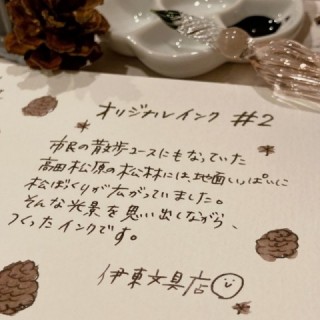 オリジナルインク #2
市民の散歩コースにもなっていた
高田松原の松林には、地面いっぱいに
松ぼっくりが広がっていました。
そんな光景を思い出しながら、
つくったインクです。
伊東文具店